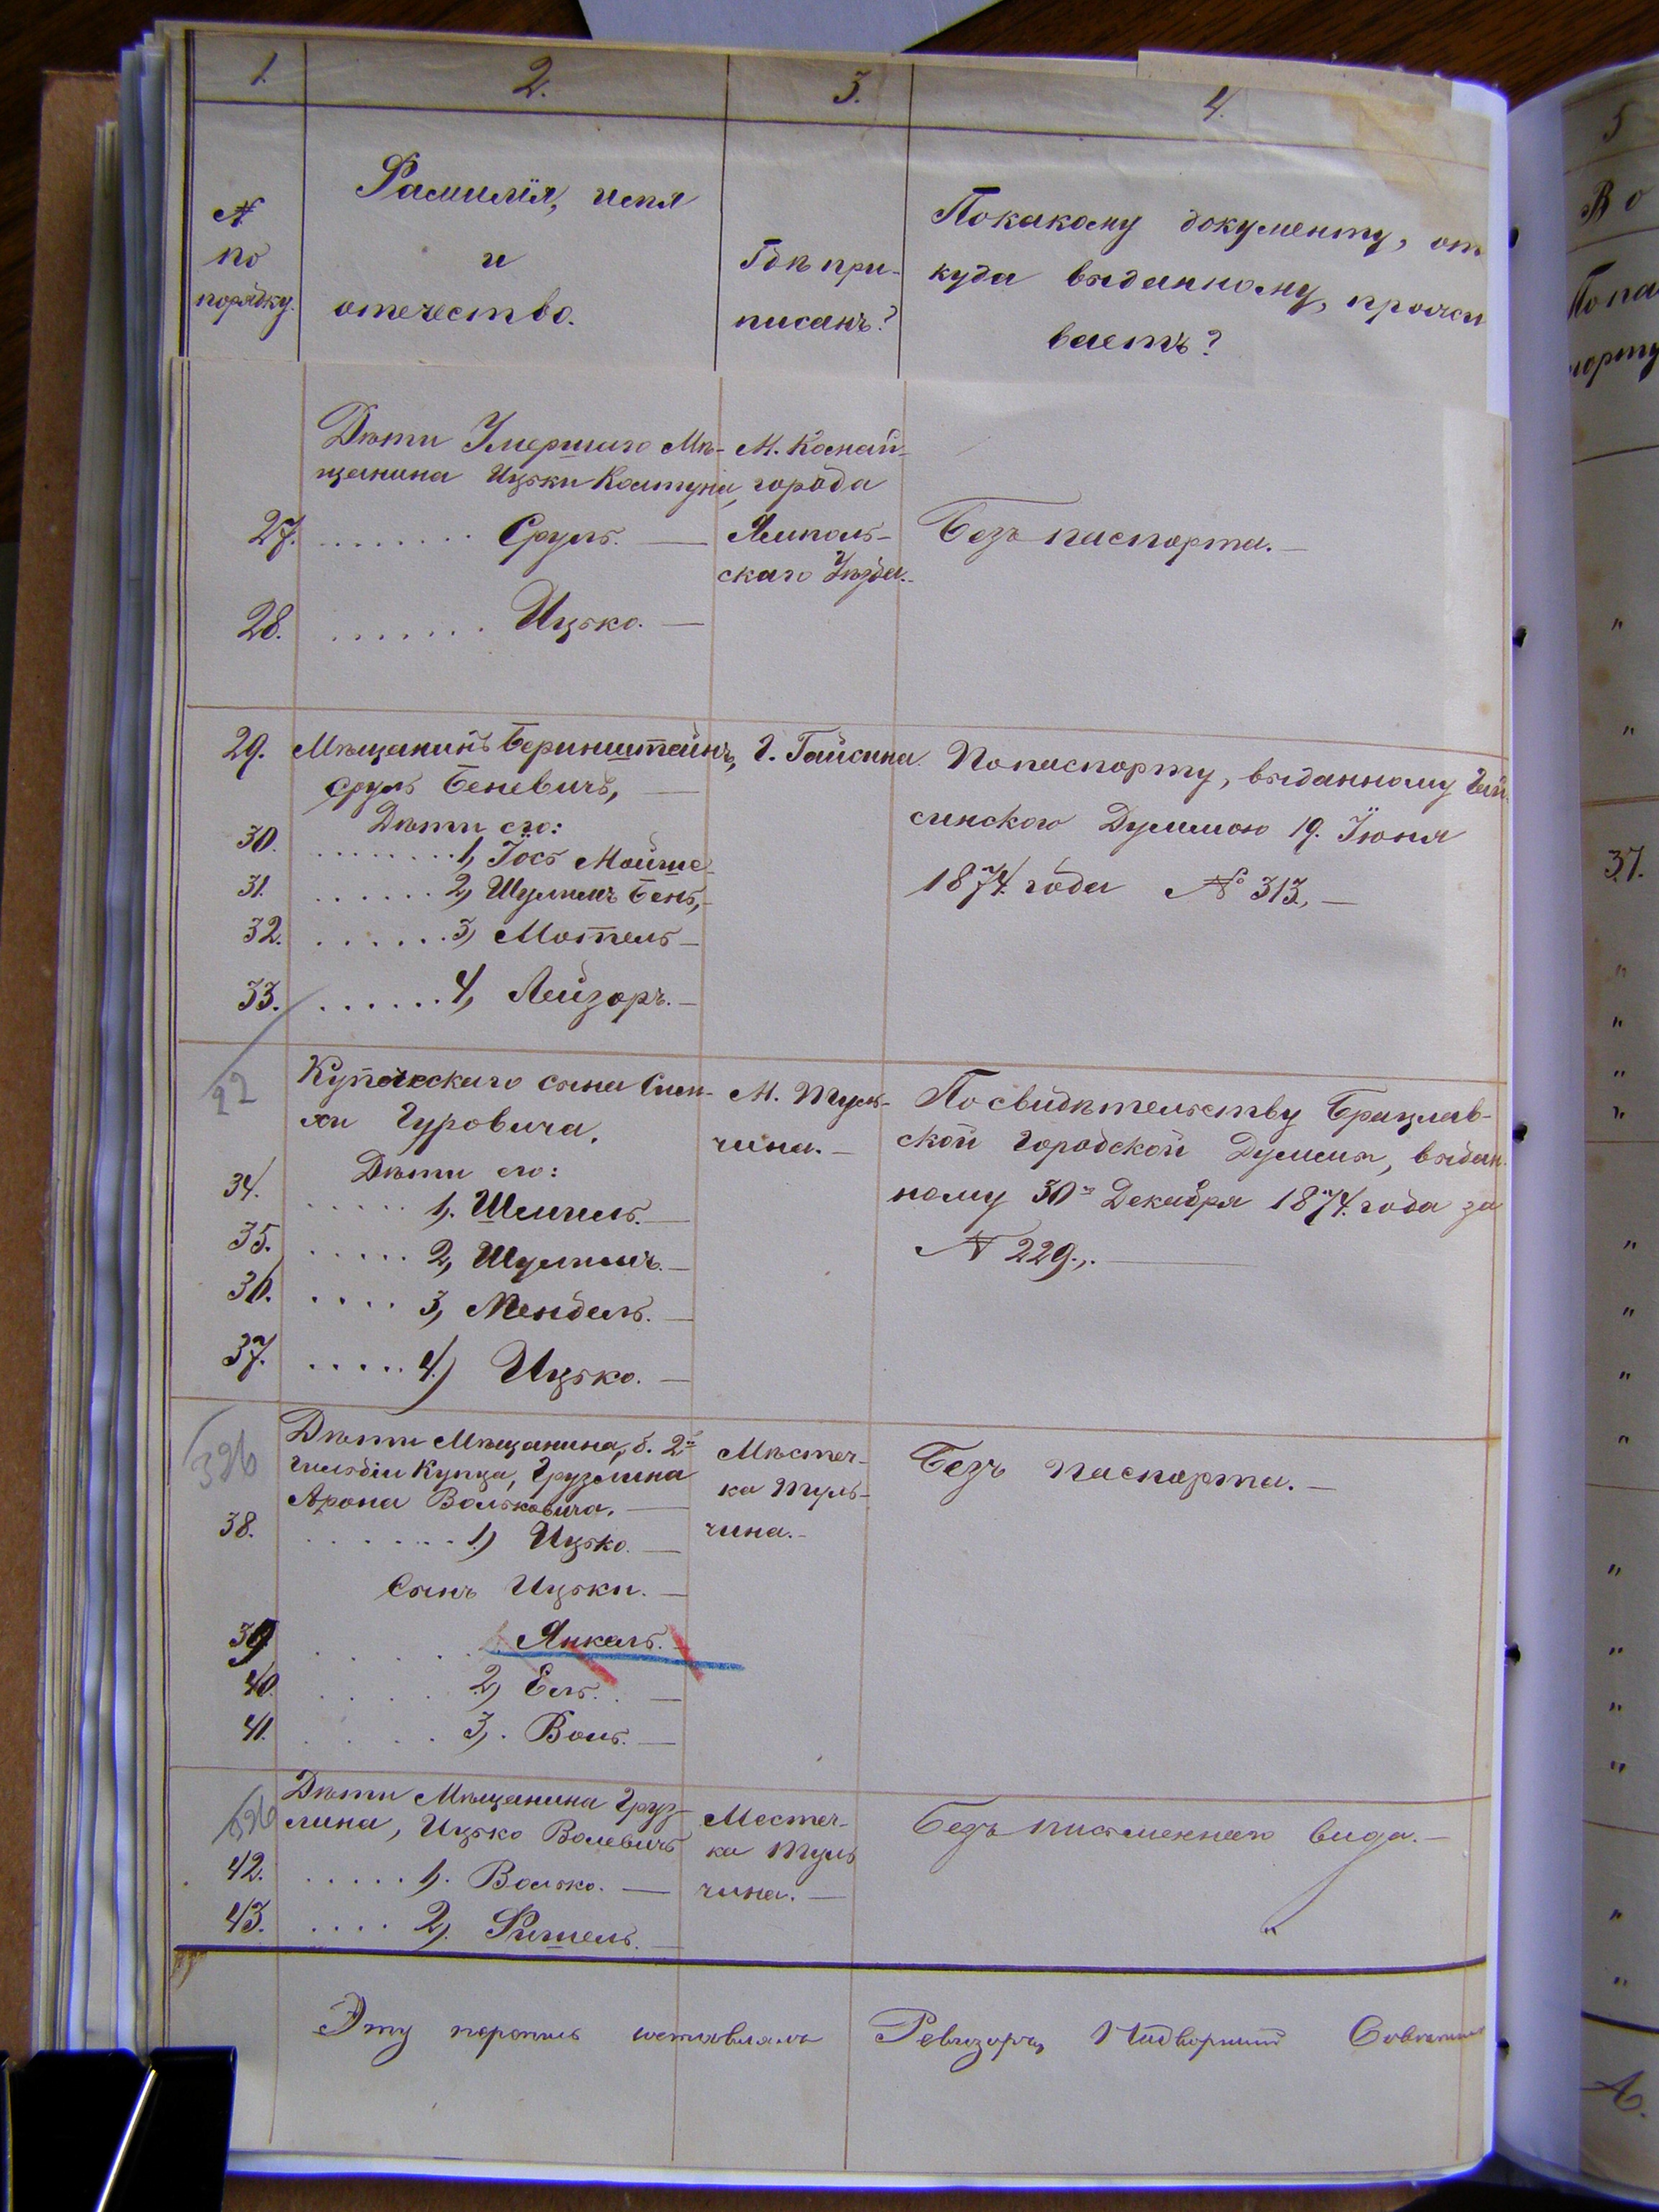 1. 2. 3. 4.
№ по порядку.
Фамилія, имя
и
отечество.
Гдѣ при-
писанъ?
Покакому документу, от
куда выданному, прожи
ваетъ?
Дѣти Умершаго Мѣ-
щанина Ицьки Колтуна,
27. Сруль. —
28. Ицько. —
города
Ямполь-
скаго Уѣзда.
Безъ паспорта. —
29. Мѣщанинъ Беринштейнъ,
Сруль Беневичъ, —
Дѣти его:
30. 1, Іось Мойше
31. 2, Шулимъ Бень, —
32. 3, Мотель —
33. 4, Лейзоръ. —
Г. Гайсина.
Попаспорту, выданному Гай-
синскою Думмою 19. Іюня
1874. года № 313., —
22
Купеческаго сына Сим-
хи Гуровича.
Дѣти его:
34. 1. Шмиль. —
35. 2, Шулимъ. —
36. 3, Мендель. —
37. 4.) Ицько. —
М. Туль-
чина. —
Посвидѣтельству Брацлав-
ской Городской Думмы, выдан-
ному 30го Декабря 1874. года за
№ 229.,. —
396
Дѣти Мѣщанина, б. 2й
гильдіи Купца, Грузлина
Арона Вольковича. —
38. 1.) Ицько. —
Сынъ Ицьки. —
39. Янкель. —
40. 2, Ель. —
41. 3,. Воль. —
Мѣстеч-
ка Туль-
чина. —
Безъ паспорта. —
Дѣти Мѣщанина Груз-
лина, Ицько Волевичъ
42. 1,. Волько. —
43. 2,. Фишель. —
Местеч-
ка Туль
чина. —
Безъ письменнаго вида. —
Эту перепись составлялъ Ревизоръ, Надворный Совѣтникъ
5
Во
Попа
порту
37.